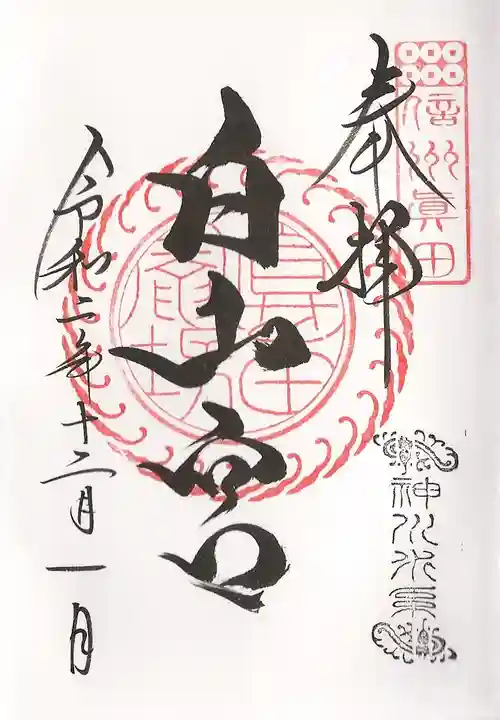 信州眞田
奉拝
白山宮
令和二年十二月一日
神川